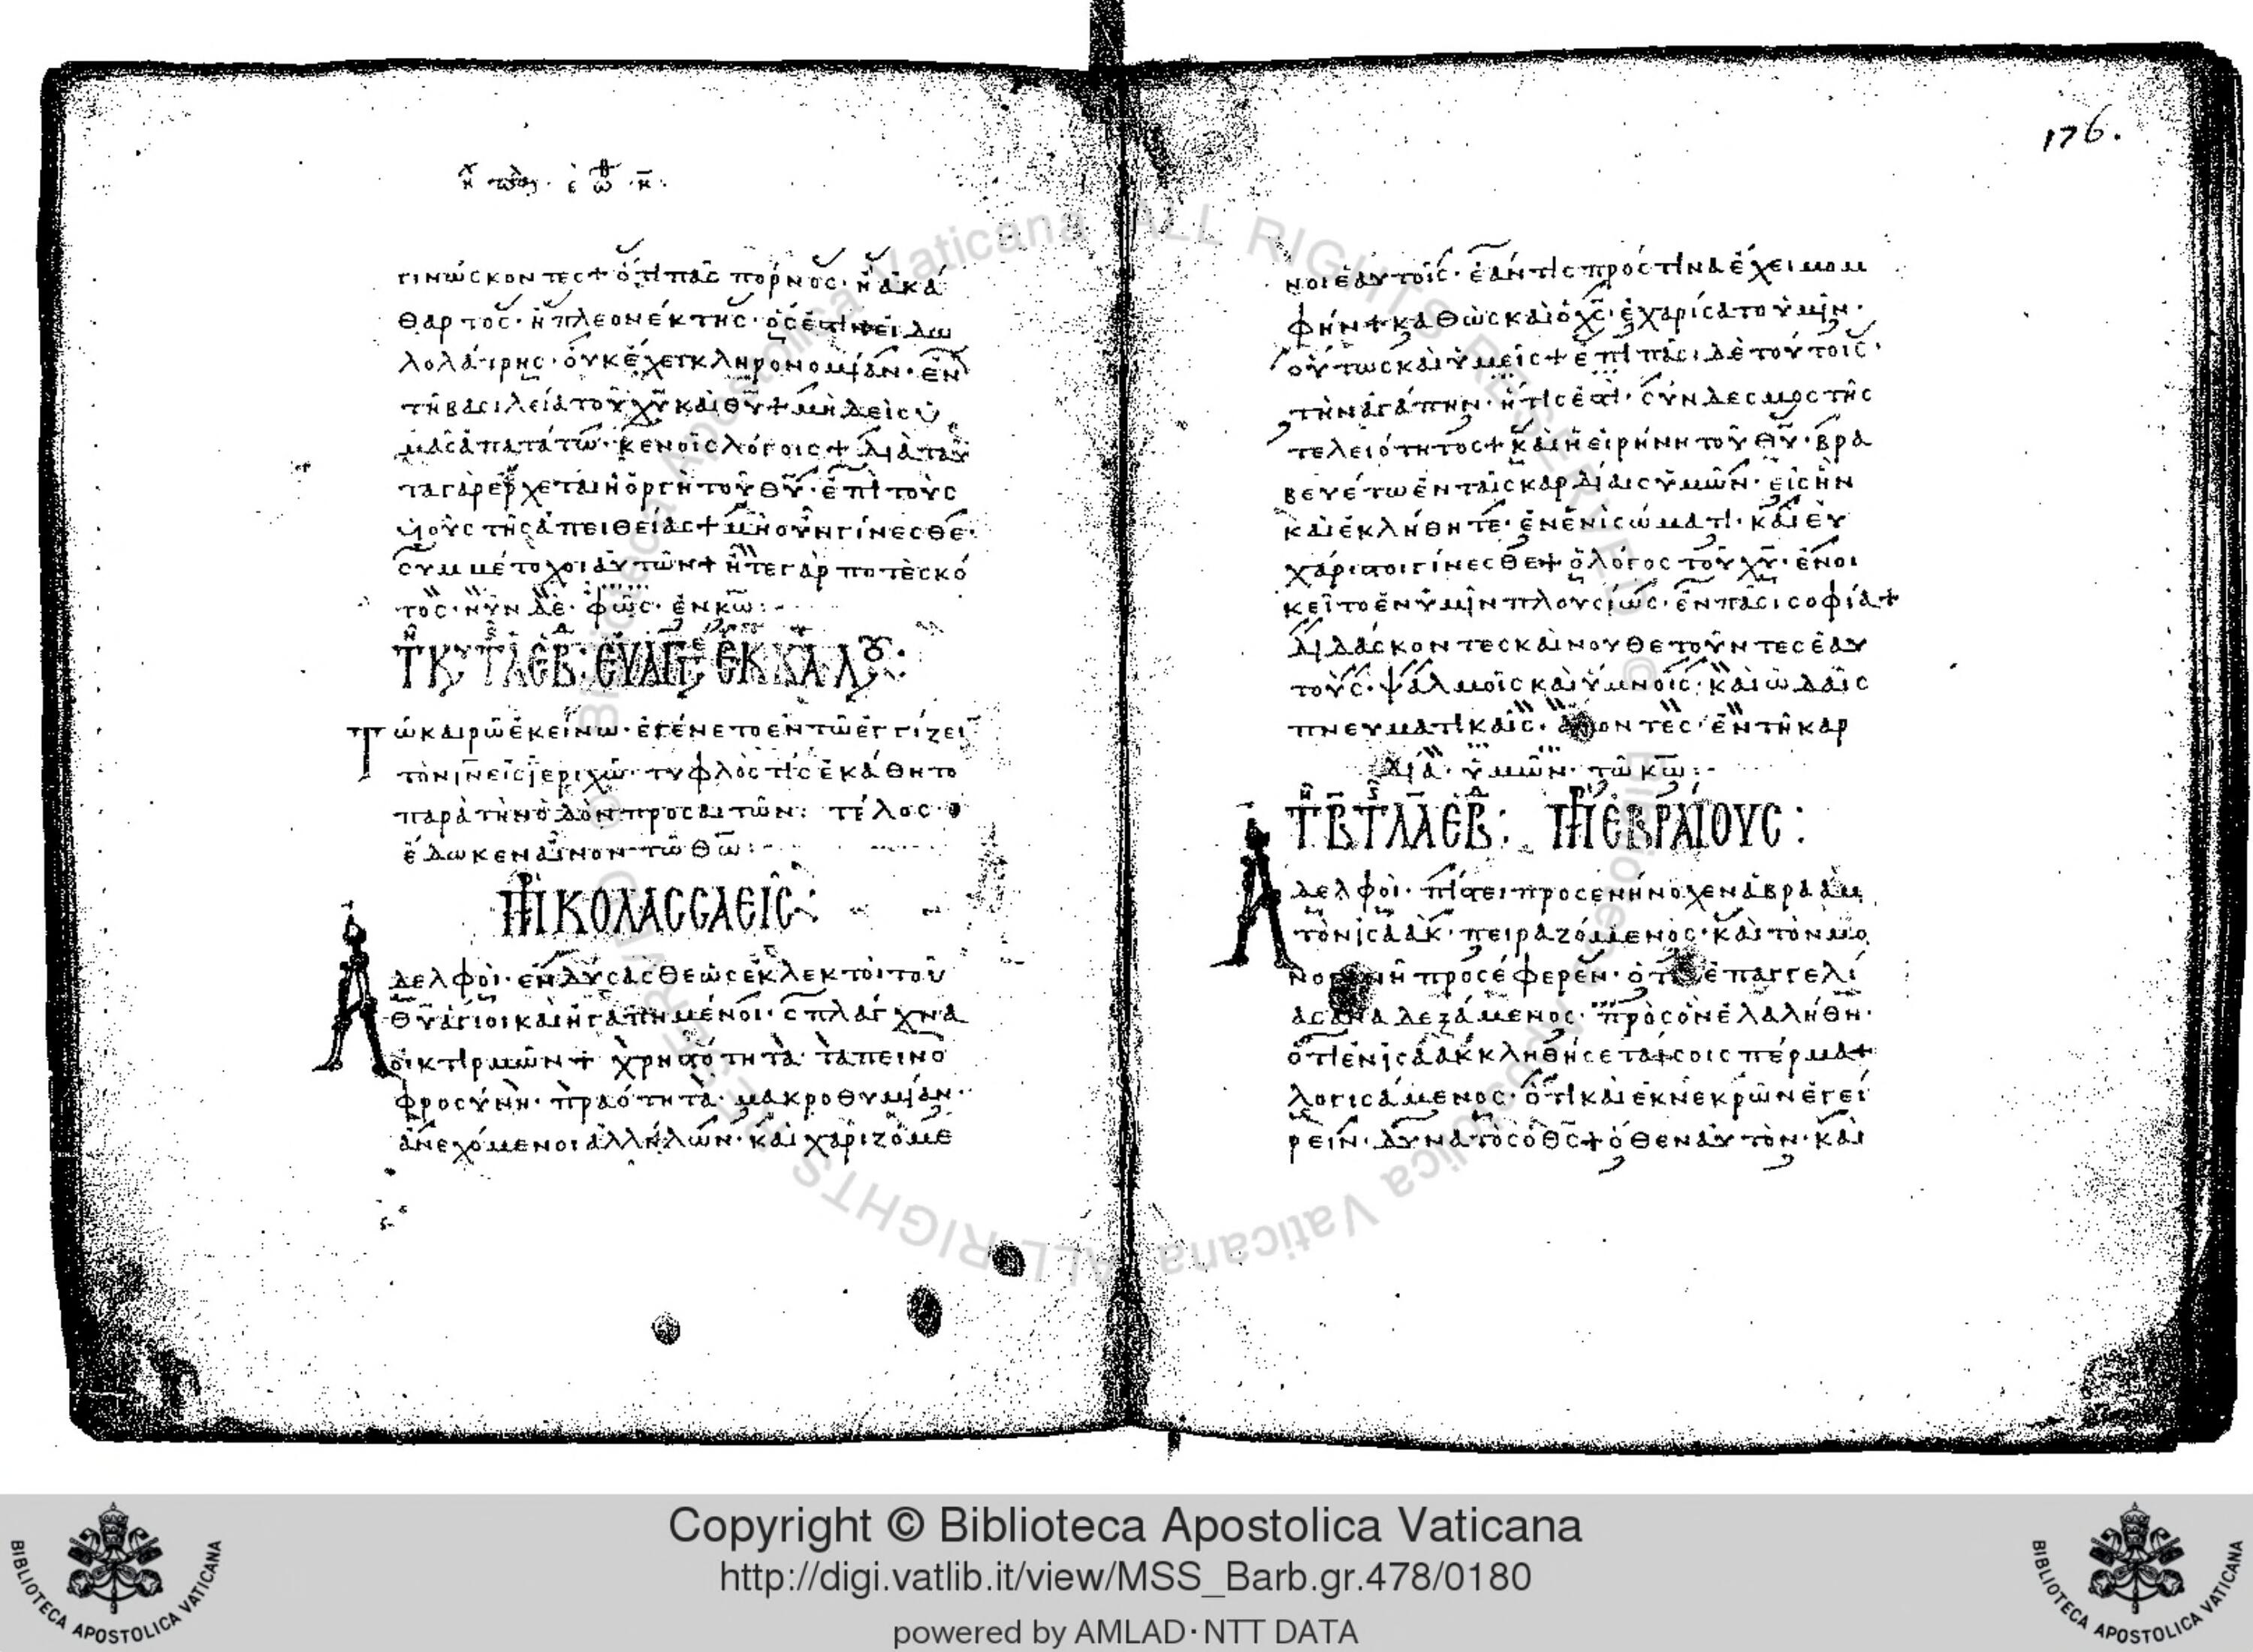 γινώσκοντες+ ὅτι πᾶς πόρνος· ἢ ἀκά
θαρτος· ἢ πλεονέκτης· ὅς ἐστιν εἰδω
λολάτρης· οὐκ ἔχει κληρονομίαν· ἐν
τῇ βασιλεία τοῦ χῦ καὶ θῦ+ μηδεὶς ὑ
μᾶς ἀπατάτω· κενοῖς λόγοις+ διὰ ταῦ
τα γὰρ ἔρχεται ἡ ὀργὴ τοῦ θῦ· ἐπὶ τοὺς
υἱοὺς τῆς ἀπειθείας+ μὴ οὖν γίνεσθε·
συμμέτοχοι αὐτῶν+ ἦτε γάρ ποτε σκό
τος· νῦν δὲ· φῶς· ἐν κω̅:
Τω καιρῶ ἐκείνω· ἐγένετο ἐν τῶ ἐγγίζειν
τὸν ιν̅ εἰς ἱεριχώ· τυφλός τις ἐκάθητο
παρὰ τὴν ὁδὸν προσαιτῶν: τέλος·
ἔδωκεν αἶνον τῶ θω̅:
ΠΡ ΚΟΛΑΣΣΑΕΙΣ:
Αδελφοὶ· ἐνδύσασθε ὡς ἐκλεκτοὶ τοῦ
θῦ ἅγιοι καὶ ἠγαπημένοι· σπλάγχνα
οἰκτιρμῶν+ χρηστότητα· ταπεινο
φροσύνην· πραότητα· μακροθυμίαν·
ἀνεχόμενοι ἀλλήλων· καὶ χαριζόμε
176.
νοι ἑαυτοῖς· ἐάν τις πρός τινα ἔχει μομ
φήν+ καθὼς καὶ ὁ χς̅ ἐχαρίσατο ὑμῖν·
οὕτως καὶ ὑμεῖς+ ἐπὶ πᾶσι δὲ τούτοις·
τὴν ἀγάπην· ἥτις ἐστὶ· σύνδεσμος τῆς
τελειότητος+ καὶ ἡ εἰρήνη τοῦ θῦ· βρα
βευέτω ἐν ταῖς καρδίαις ὑμῶν· εἰς ἣν
καὶ ἐκλήθητε· ἐν ἑνὶ σώματι· καὶ εὐ
χάριστοι γίνεσθε+ ὁ λόγος τοῦ χῦ· ἐνοι
κείτο ἐν ὑμῖν πλουσίως· ἐν πάσι σοφία+
διδάσκοντες καὶ νουθετοῦντες ἑαυ
τούς· ψαλμοῖς καὶ ὕμνοις· καὶ ὠδαῖς
πνευματικαῖς· ἄδοντες ἐν τῆ καρ
δία· ὑμῶν· τῶ κω̅:
ΠΡ ΕΒΡΑΙΟΥΣ:
Αδελφοὶ· πίστει προσενήνοχεν ἀβραὰμ
τὸν ἰσαὰκ· πειραζόμενος· καὶ τὸν μο
νογενῆ προσέφερεν· ὁ τὰς ἐπαγγελί
ας ἀναδεξάμενος· πρὸς ὃν ἐλαλήθη·
ὅτι ἐν ἰσαὰκ κληθήσεταί σοι σπέρμα+
λογισάμενος· ὅτι καὶ ἐκ νεκρῶν ἐγεί
ρειν· δυνατὸς ὁ θς̅+ ὅθεν αὐτὸν· καὶ
Copyright © Biblioteca Apostolica Vaticana
http://digi.vatlib.it/view/MSS_Barb.gr.478/0180
powered by AMLAD·NTT DATA
BIBLIOTECA APOSTOLICA VATICANA
BIBLIOTECA APOSTOLICA VATICANA